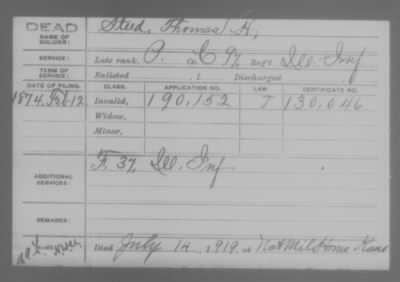 DEAD
NAME OF SOLDIER: Steed, Thomas H,
SERVICE: Late rank, P. Co. C 97 Reg't Ill Inf
TERM OF SERVICE: Enlisted , 1 Discharged
DATE OF FILING. CLASS. APPLICATION NO. LAW. CERTIFICATE NO.
1874, Feb 12 Invalid, 190,152 J 130,046
Widow,
Minor,
ADDITIONAL SERVICES: F. 37, Ill. Inf
REMARKS:
Died July 14, 1919, at Nat Mil Home Kans